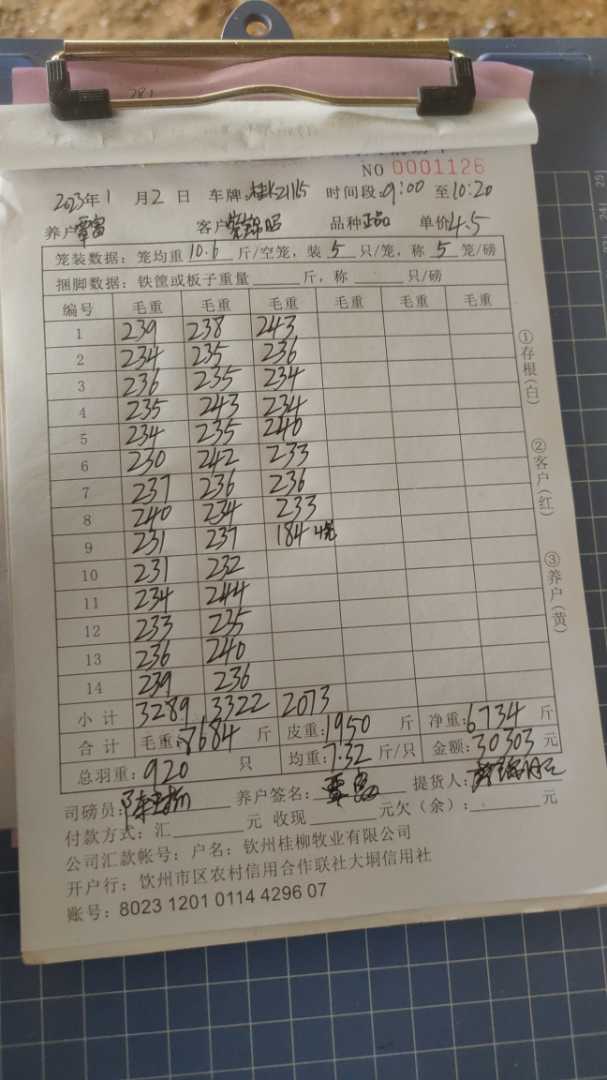 281
NO 0001126
2023年1月2日 车牌:桂K21165 时间段:9:00至10:20
养户 客户 品种正品 单价4.5
笼装数据:笼均重10.6斤/空笼,装5只/笼,称5笼/磅
捆脚数据:铁筐或板子重量 斤,称 只/磅
编号 毛重 毛重 毛重 毛重 毛重 毛重
1 239 238 243
2 234 235 236
3 236 235 234
4 235 243 234
5 234 235 240
6 230 242 233
7 237 236 236
8 240 234 233
9 231 237 184 4笼
10 231 232
11 234 244
12 233 235
13 236 240
14 239 236
小计 3289 3322 2073
合计 毛重:8684斤 皮重:1950斤 净重:6734斤
总羽重:920只 均重:7.32斤/只 金额:30303元
司磅员: 养户签名: 提货人:
付款方式:汇 元 收现 元欠(余): 元
公司汇款帐号:户名:钦州桂柳牧业有限公司
开户行:钦州市区农村信用合作联社大垌信用社
账号:8023 1201 0114 4296 07
①存根(白)
②客户(红)
③养户(黄)